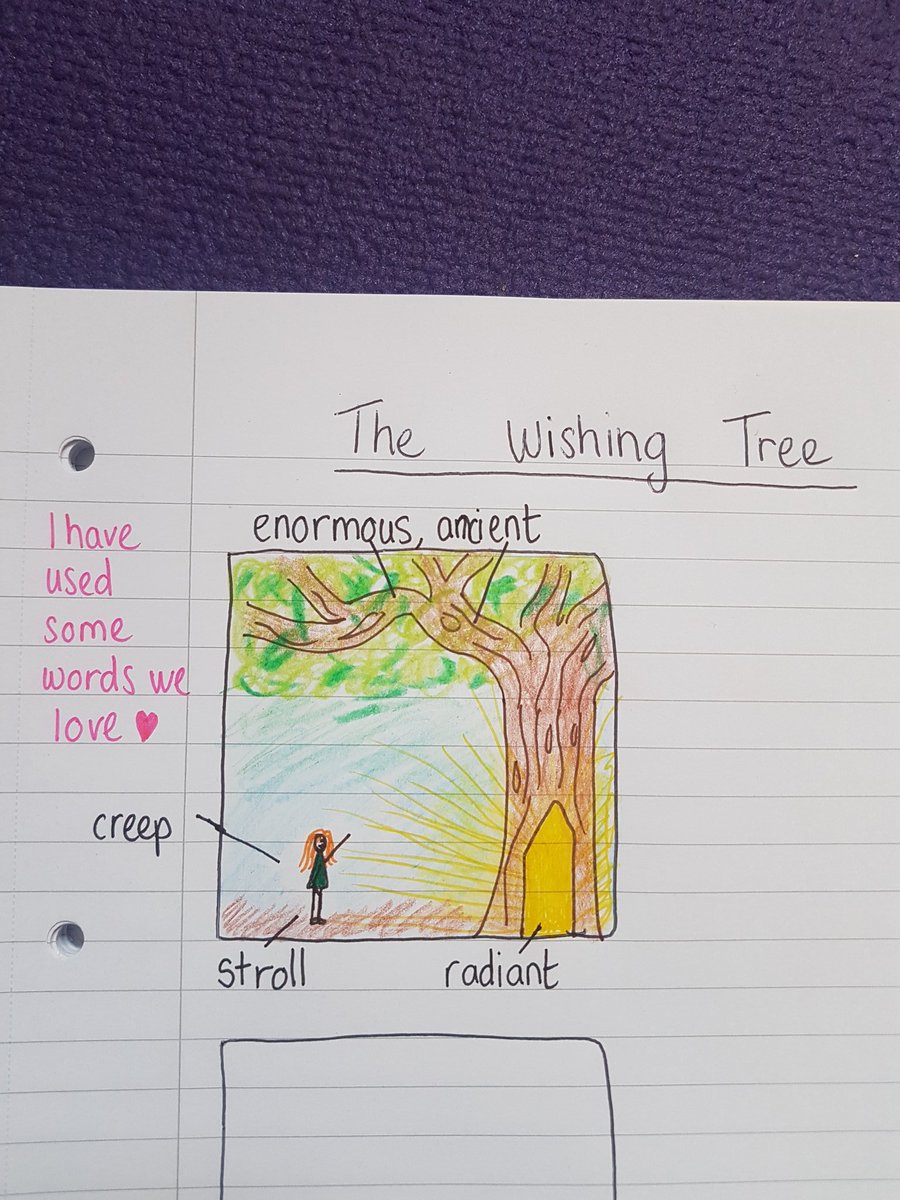 The Wishing Tree
I have
used
some
words we
love ♥
enormous, ancient
creep
stroll
radiant